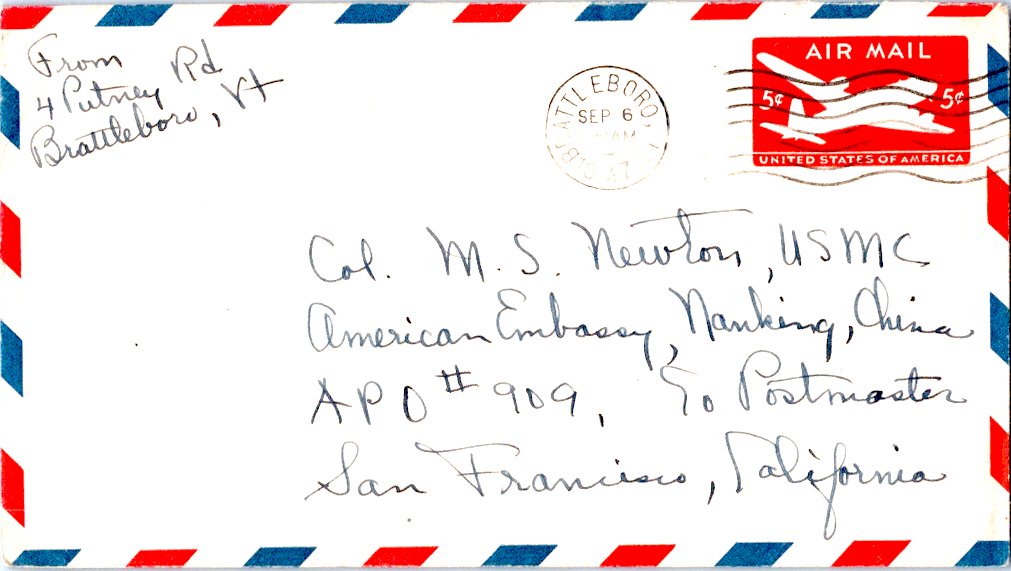 From
4 Putney Rd
Brattleboro, Vt
BRATTLEBORO, VT.
SEP 6
AM
1947
AIR MAIL
5¢ 5¢
UNITED STATES OF AMERICA
Col. M. S. Newton, USMC
American Embassy, Nanking, China
APO # 909, ℅ Postmaster
San Francisco, California